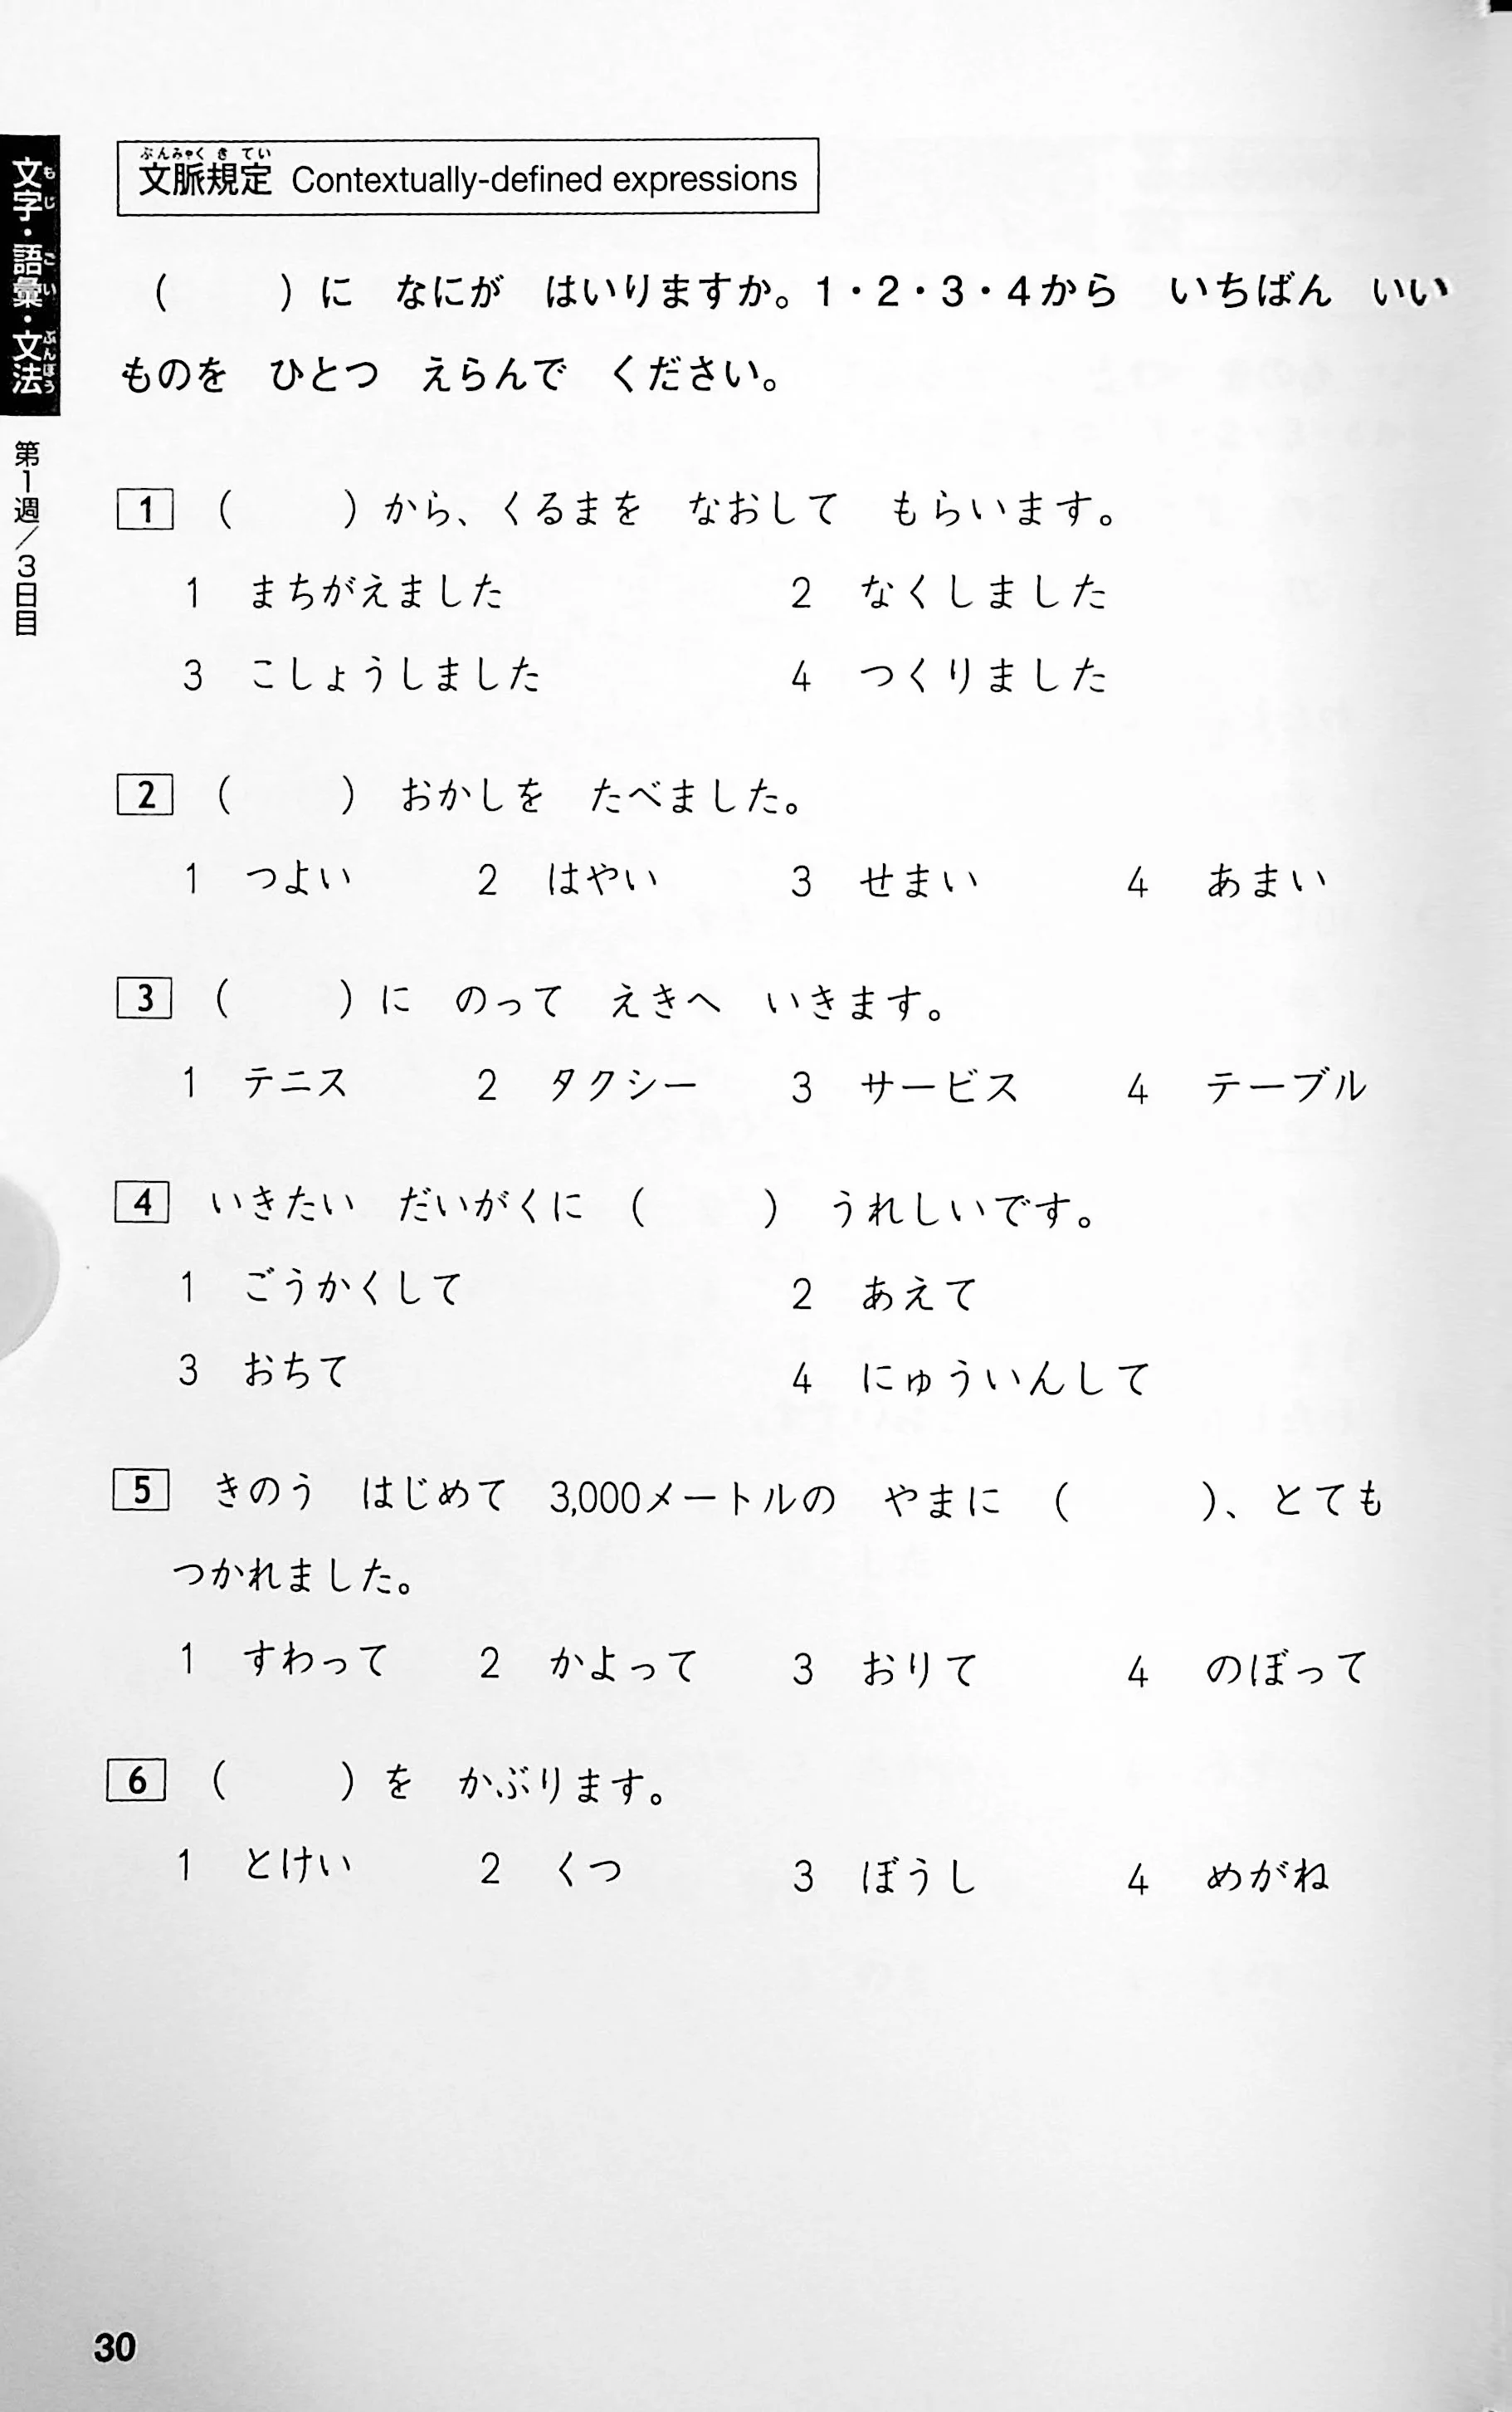 文字・語彙・文法
もじ ごい ぶんぽう
第1週/3日目
ぶんみゃくきてい
文脈規定 Contextually-defined expressions
(　　　)に　なにが　はいりますか。1・2・3・4から　いちばん　いい
ものを　ひとつ　えらんで　ください。
1　(　　　)から、くるまを　なおして　もらいます。
1　まちがえました　2　なくしました
3　こしょうしました　4　つくりました
2　(　　　)　おかしを　たべました。
1　つよい　2　はやい　3　せまい　4　あまい
3　(　　　)に　のって　えきへ　いきます。
1　テニス　2　タクシー　3　サービス　4　テーブル
4　いきたい　だいがくに　(　　　)　うれしいです。
1　ごうかくして　2　あえて
3　おちて　4　にゅういんして
5　きのう　はじめて　3,000メートルの　やまに　(　　　)、とても
つかれました。
1　すわって　2　かよって　3　おりて　4　のぼって
6　(　　　)を　かぶります。
1　とけい　2　くつ　3　ぼうし　4　めがね
30